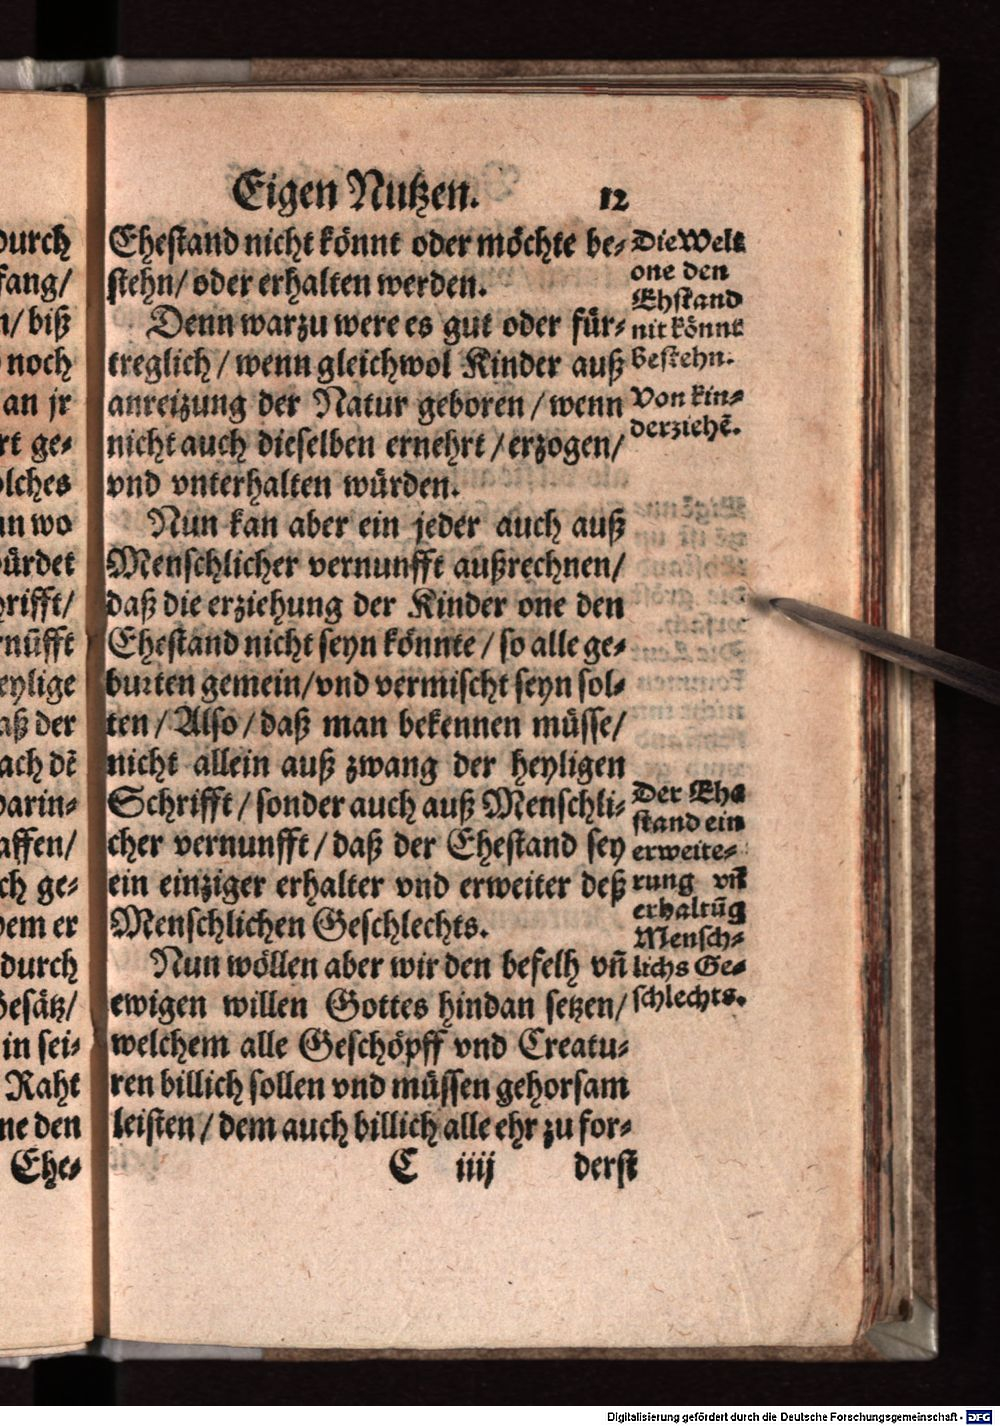 durch
fang/
n/ biß
noch
an jr
rt ge-
olches
nn wo
ürdet
hrifft/
rnüfft
eylige
aß der
ach dē
darin-
affen/
ch ge-
dem er
durch
Gesätz/
in sei-
Raht
ne den
Ehe-
Eigen Nutzen. 12
Ehestand nicht könnt oder möchte be-
stehn/ oder erhalten werden.
Denn warzu were es gut oder für-
treglich / wenn gleichwol Kinder auß
anreizung der Natur geboren / wenn
nicht auch dieselben ernehrt / erzogen/
vnd vnterhalten würden.
Nun kan aber ein jeder auch auß
Menschlicher vernunfft außrechnen/
daß die erziehung der Kinder one den
Ehestand nicht seyn könnte / so alle ge-
burten gemein/ vnd vermischt seyn sol-
ten / Also / daß man bekennen müsse/
nicht allein auß zwang der heyligen
Schrifft / sonder auch auß Menschli-
cher vernunfft / daß der Ehestand sey
ein einziger erhalter vnd erweiter deß
Menschlichen Geschlechts.
Nun wöllen aber wir den befelh vñ
ewigen willen Gottes hindan setzen/
welchem alle Geschöpff vnd Creatu-
ren billich sollen vnd müssen gehorsam
leisten / dem auch billich alle ehr zu for-
C iiij derst
Die Welt
one den
Ehstand
nit könne
bestehn.
Von kin-
derziehē.
Der Ehe
stand ein
erweite-
rung vñ
erhaltūg
Mensch-
lichs Ge-
schlechts.
Digitalisierung gefördert durch die Deutsche Forschungsgemeinschaft - DFG